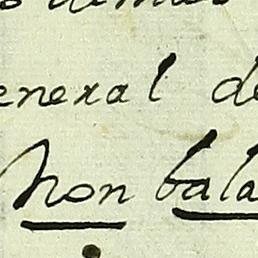 eneral de
Non bala